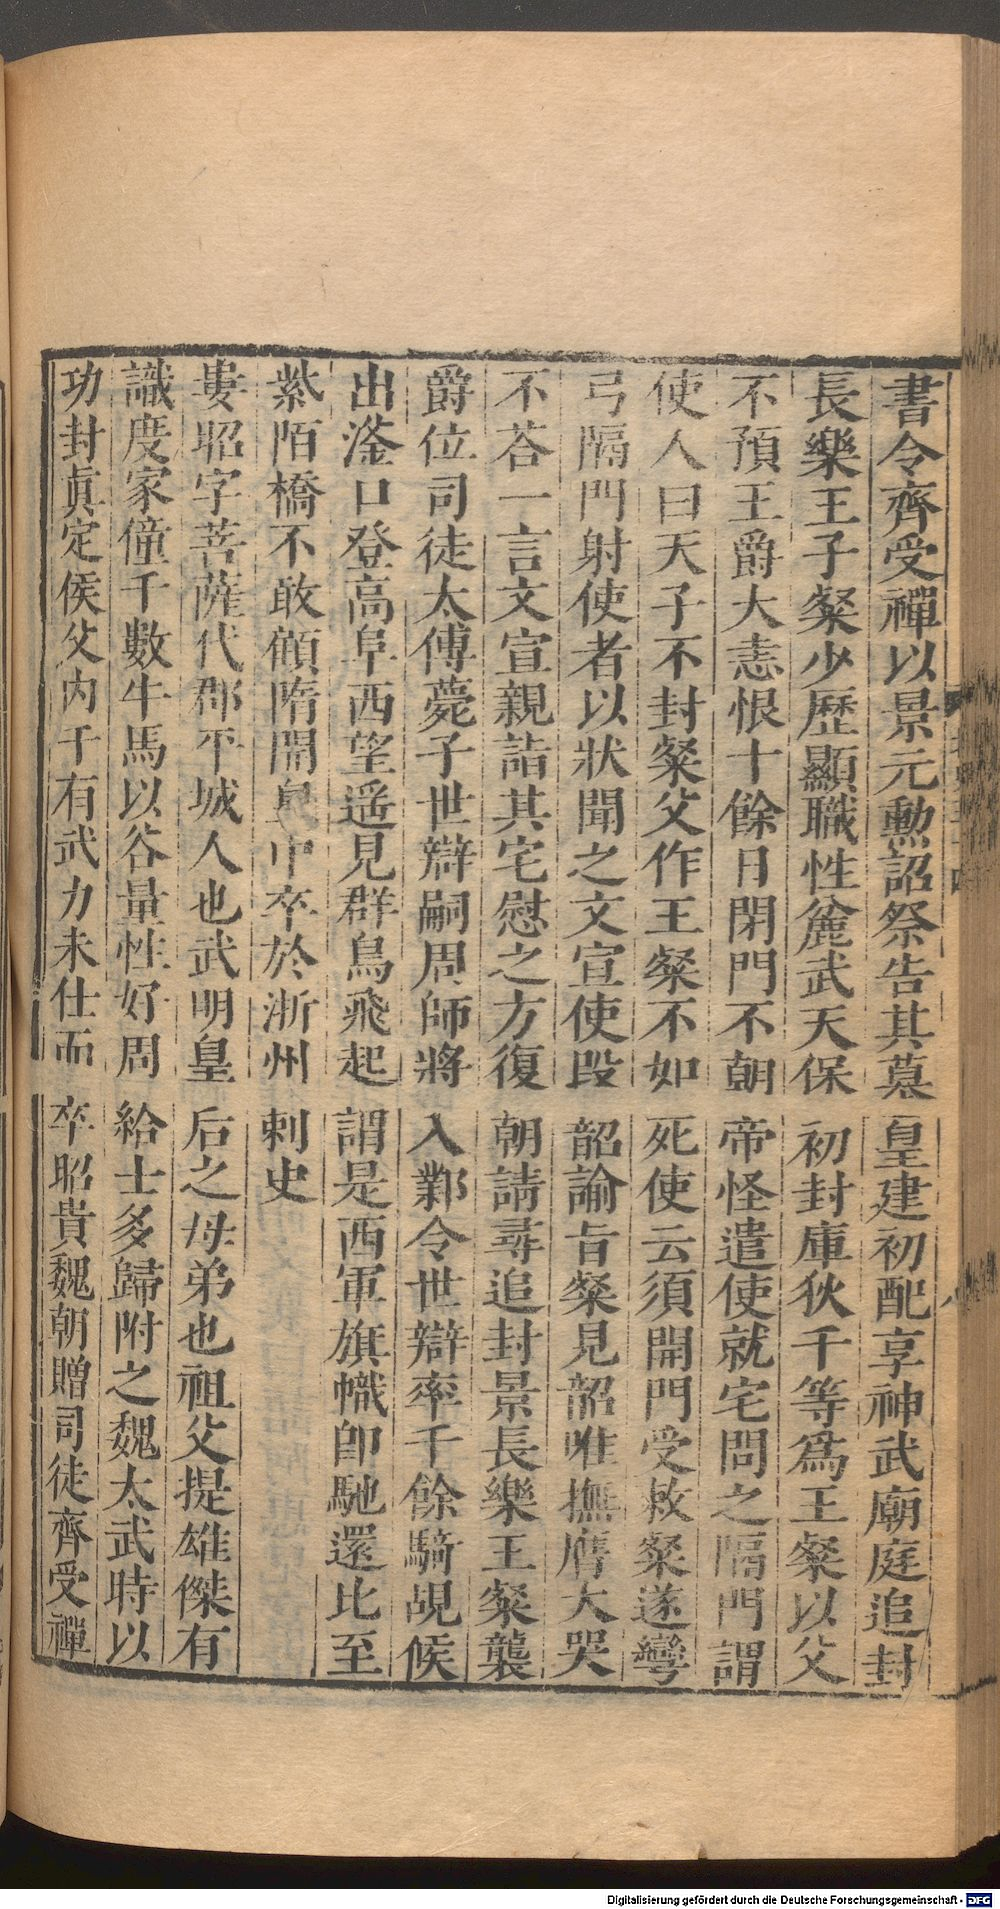 書令齊受禪以景元勳詔祭告其墓皇建初配享神武廟庭追封
長樂王子粲少歷顯職性麄武天保初封庫狄干等爲王粲以父
不預王爵大恚恨十餘日閉門不朝帝怪遣使就宅問之隔門謂
使人曰天子不封粲父作王粲不如死使云須開門受敕粲遂彎
弓隔門射使者以狀聞之文宣使段韶諭旨粲見韶唯撫膺大哭
不荅一言文宣親詣其宅慰之方復朝請尋追封景長樂王粲襲
爵位司徒太傅薨子世辯嗣周師將入鄴令世辯率千餘騎覘候
出滏口登高阜西望遥見群鳥飛起謂是西軍旗幟卽馳還比至
紫陌橋不敢顧隋開皇中卒於淅州刺史
婁昭字菩薩代郡平城人也武明皇后之母弟也祖父提雄傑有
識度家僮千數牛馬以谷量性好周給士多歸附之魏太武時以
功封眞定侯父内干有武力未仕而卒昭貴魏朝贈司徒齊受禪
Digitalisierung gefördert durch die Deutsche Forschungsgemeinschaft - DFG